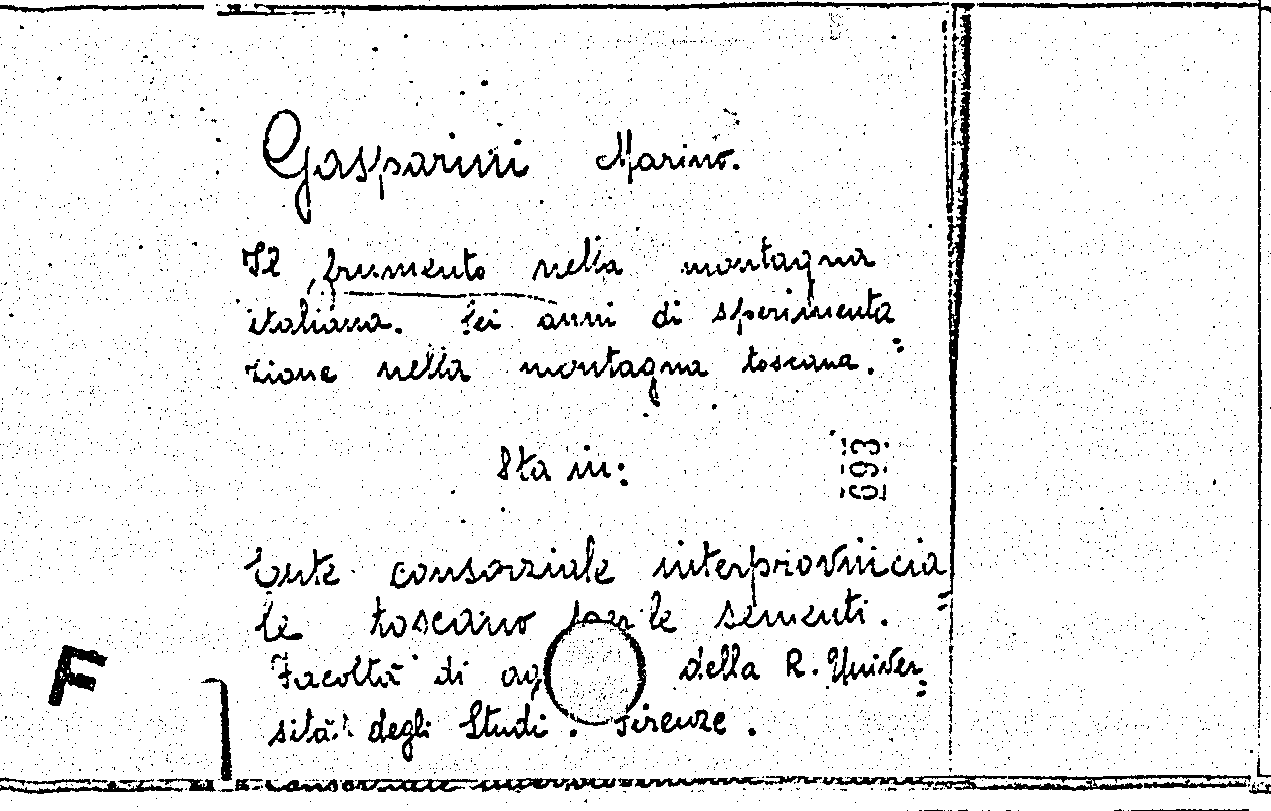 Gasparini Marino.
Il frumento nella montagna
italiana. Sei anni di sperimenta
zione nella montagna toscana.
Sta in:
693
Ente consorziale interprovincia
le toscano per le sementi.
Facoltà di ag della R. Univer
sità degli Studi. Firenze.
F